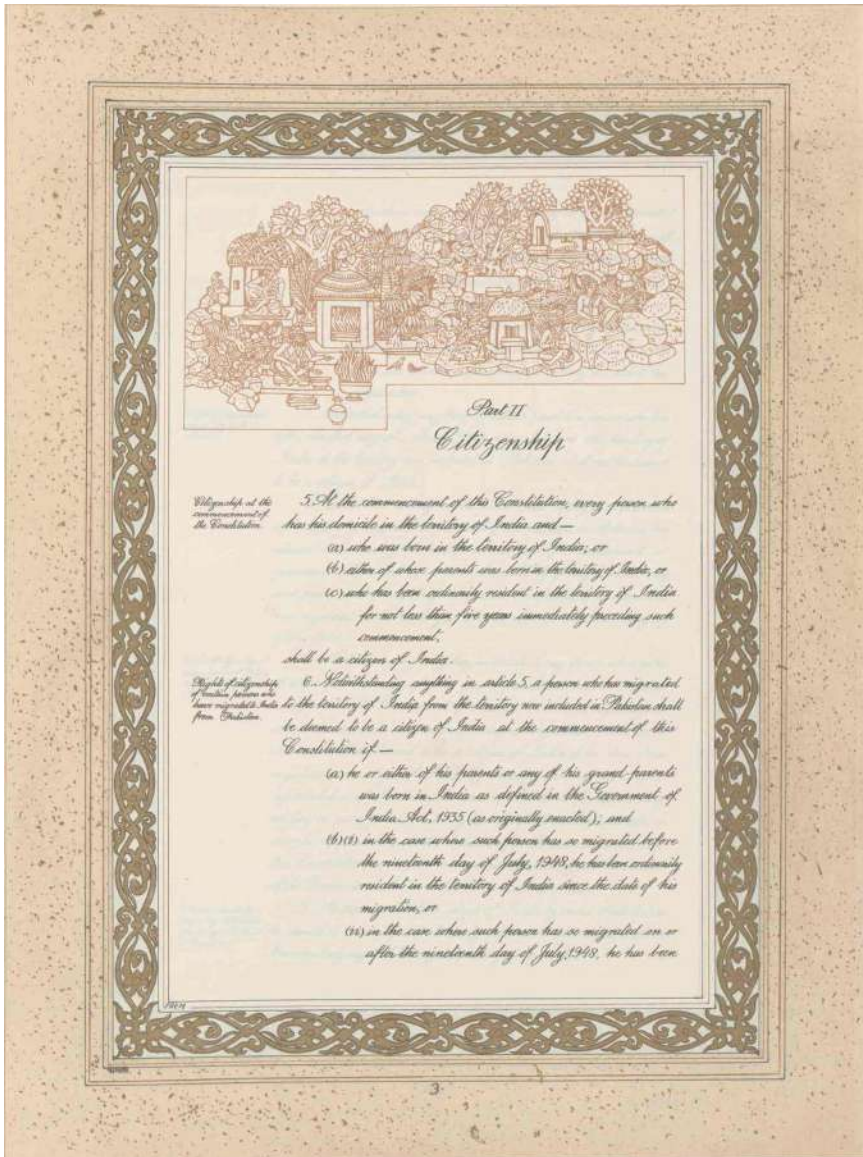 Part II
Citizenship
Citizenship at the
commencement of
the Constitution.
5. At the commencement of this Constitution, every person who
has his domicile in the territory of India and —
(a) who was born in the territory of India; or
(b) either of whose parents was born in the territory of India; or
(c) who has been ordinarily resident in the territory of India
for not less than five years immediately preceding such
commencement,
shall be a citizen of India.
Rights of citizenship
of certain persons who
have migrated to India
from Pakistan.
6. Notwithstanding anything in article 5, a person who has migrated
to the territory of India from the territory now included in Pakistan shall
be deemed to be a citizen of India at the commencement of this
Constitution if —
(a) he or either of his parents or any of his grand-parents
was born in India as defined in the Government of
India Act, 1935 (as originally enacted); and
(b) (i) in the case where such person has so migrated before
the nineteenth day of July, 1948, he has been ordinarily
resident in the territory of India since the date of his
migration, or
(ii) in the case where such person has so migrated on or
after the nineteenth day of July, 1948, he has been
3